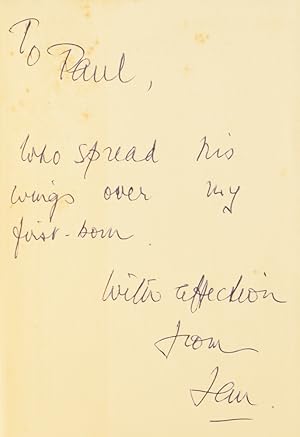 To Paul,
who spread his
wings over my
first-born.
With affection
from